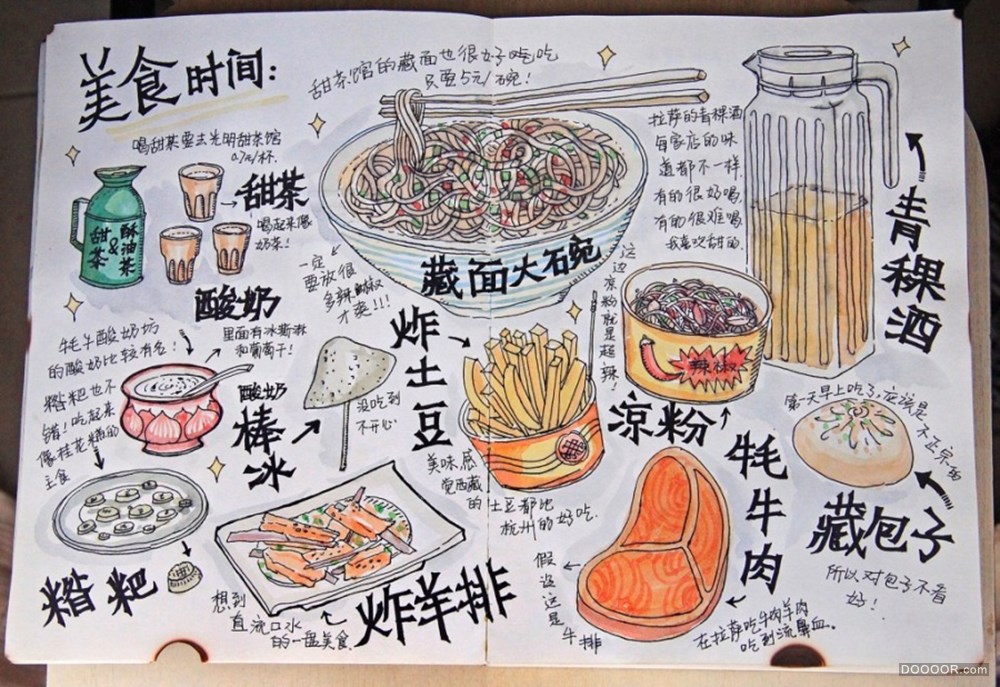 美食时间:
甜茶馆的藏面也很好吃吃
只要5元/碗!
喝甜茶要去光明甜茶馆
0.7元/杯.
甜茶
喝起来像
奶茶!
甜茶
&
酥油茶
藏面大碗
一定
要放很
多辣
才爽!!!
拉萨的青稞酒
每家店的味
道都不一样.
有的很好喝,
有的很难喝
我喜欢甜的.
青稞酒
酸奶
里面有冰斯淋
和葡萄干!
牦牛酸奶坊
的酸奶比较有名!
糌粑也不
错!吃起来
像桂花糕的
主食
糌粑
酸奶
棒冰
没吃到
不开心
炸土豆
美味.感
觉西藏
的土豆都比
杭州的好吃.
这边凉粉就是超辣!
辣椒
凉粉
牦牛肉
假
这是牛排
在拉萨吃牛肉羊肉
吃到流鼻血.
第一天早上吃了,应该是
不正宗的
藏包子
所以对包子不看
好!
炸羊排
想到
直流口水
的一盘美食.
DOOOOR.com